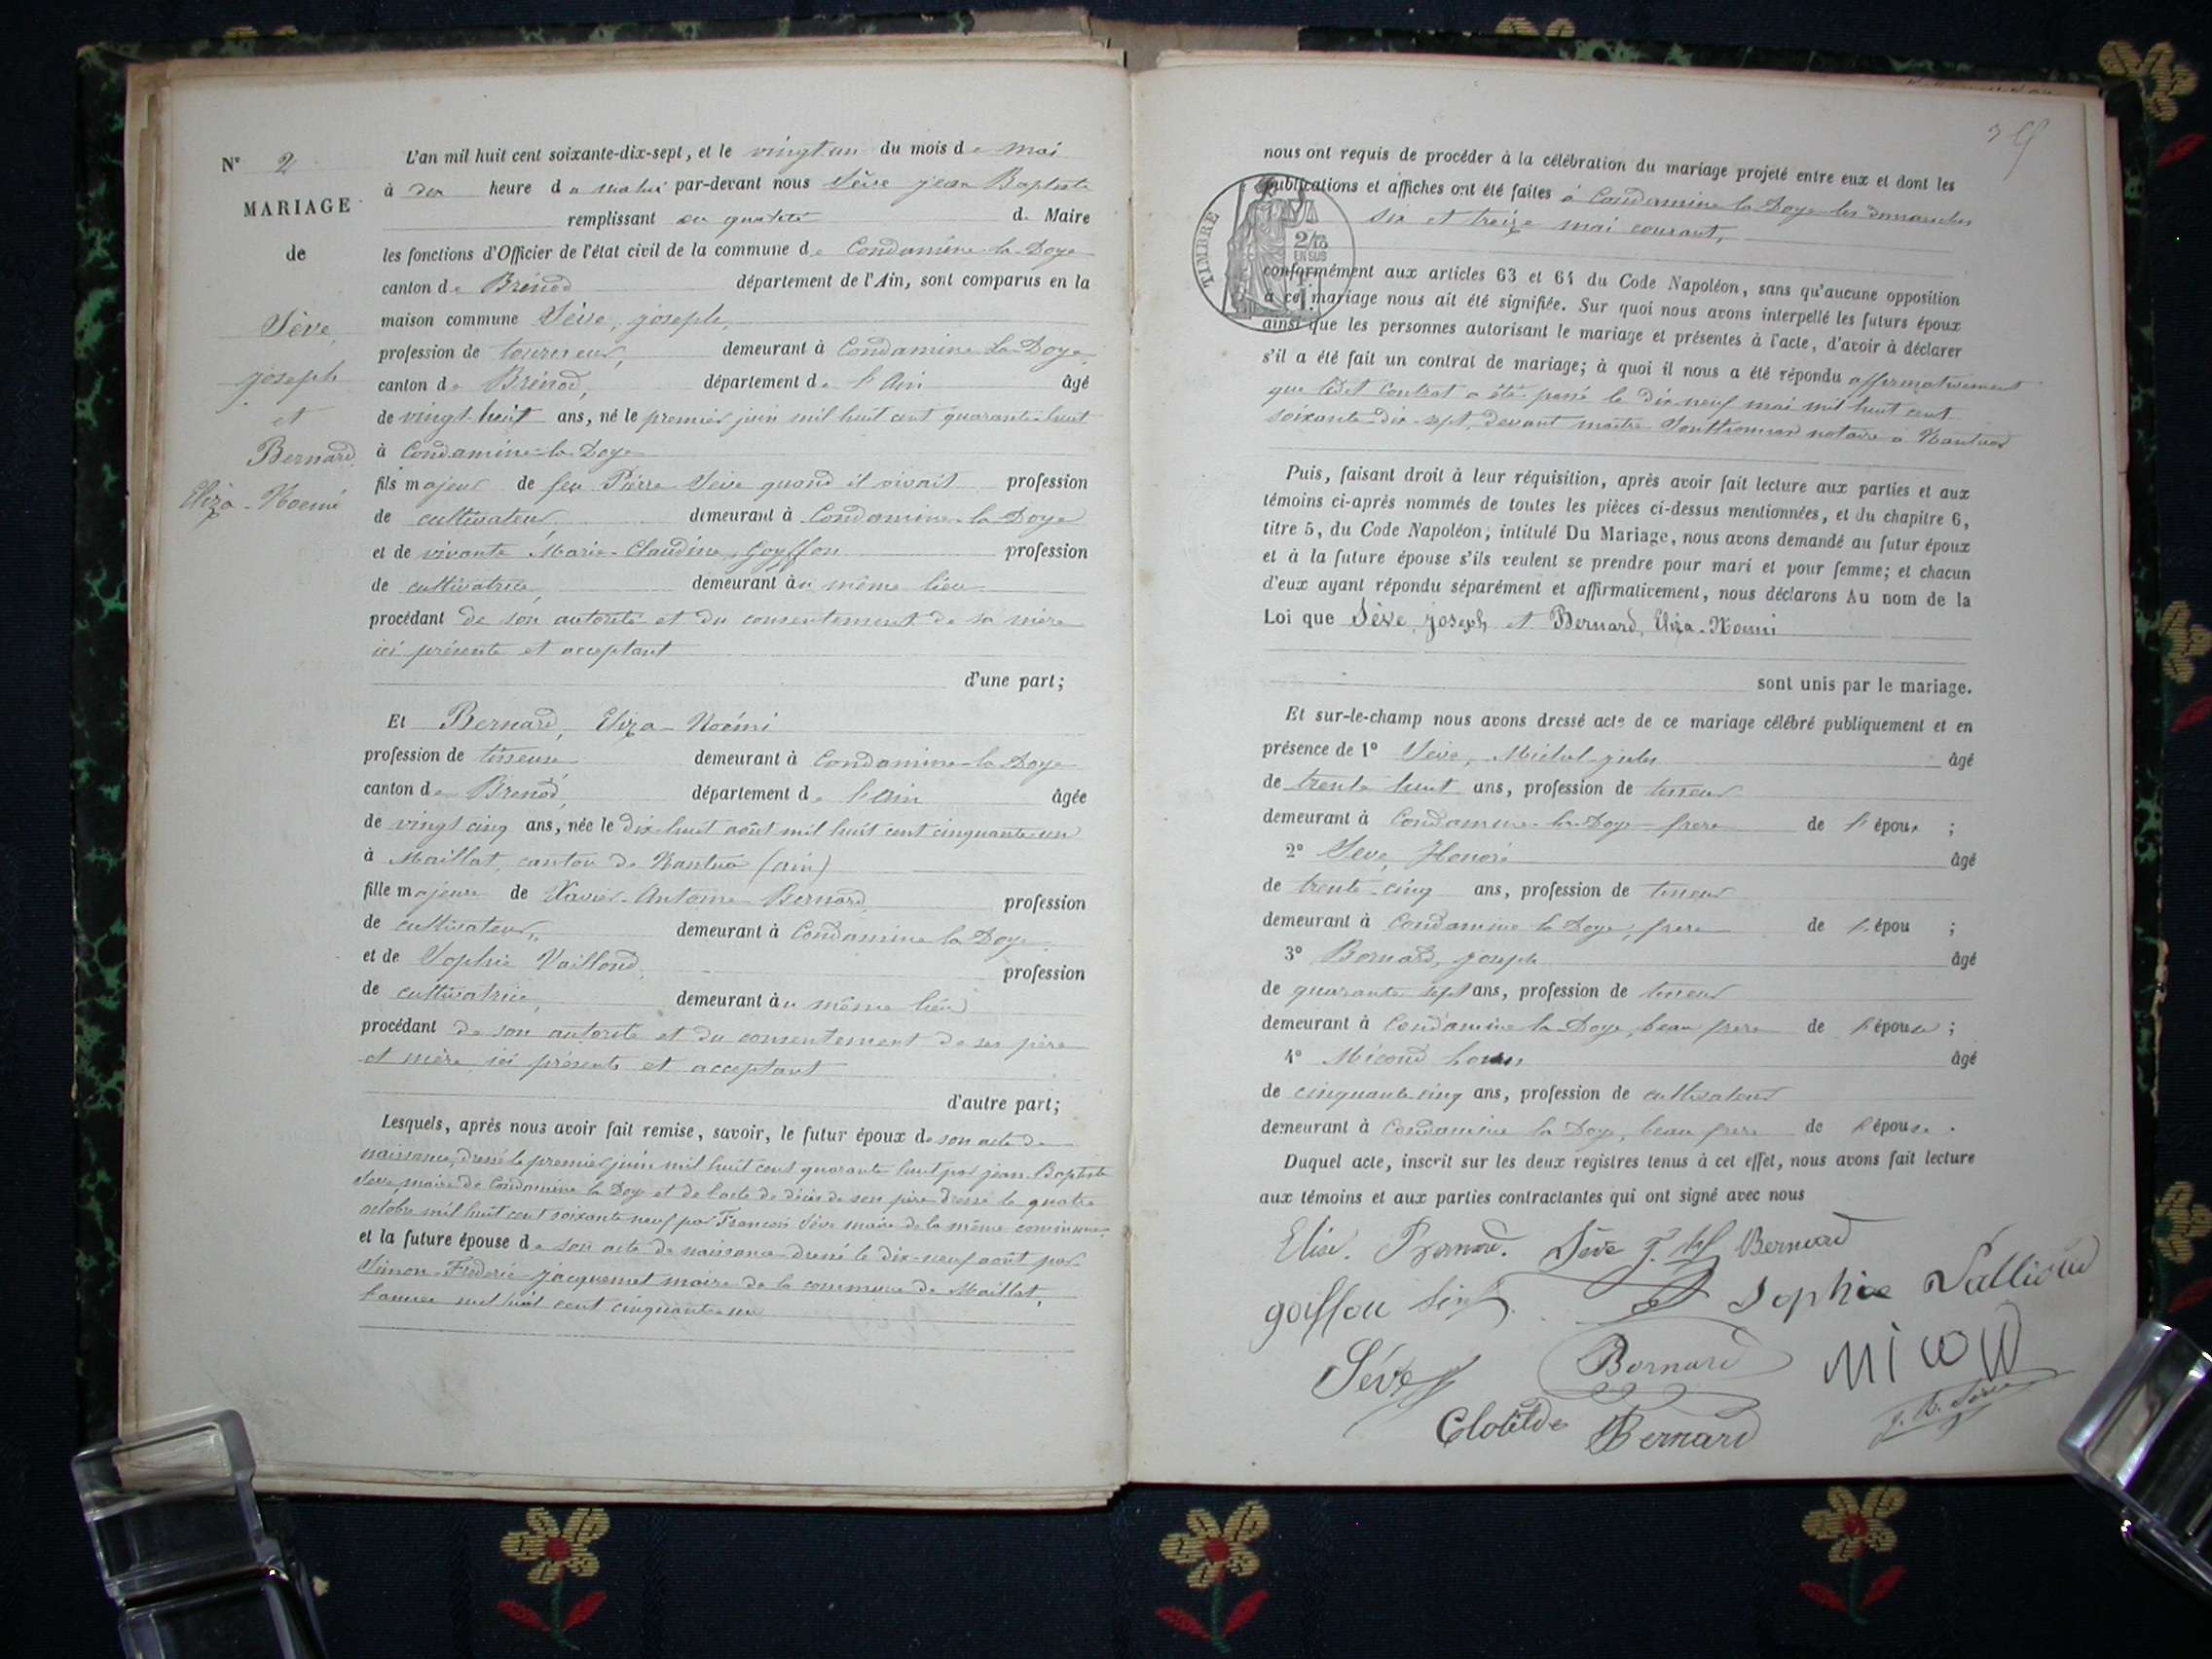 N° 2
MARIAGE
de
Sève,
joseph
et
Bernard,
Eliza-Noemi
L'an mil huit cent soixante-dix-sept, et le vingt un du mois de mai
à dix heure du matin par-devant nous Sève jean Baptiste
remplissant en qualité de Maire
les fonctions d'Officier de l'état civil de la commune de Condamine-la-Doye
canton de Brénod département de l'Ain, sont comparus en la
maison commune Sève, joseph,
profession de tourneur, demeurant à Condamine La-Doye,
canton de Brénod, département de l'Ain âgé
de vingt-huit ans, né le premier juin mil huit cent quarante-huit
à Condamine-la-Doye
fils majeur de feu Pierre Sève quand il vivait profession
de cultivateur demeurant à Condamine-la-Doye
et de vivante Marie-Claudine Goyffon profession
de cultivatrice, demeurant au même lieu
procédant de son autorité et du consentement de sa mère
ici présente et acceptant
d'une part;
Et Bernard, Eliza-Noémi
profession de tisseuse demeurant à Condamine-la-Doye
canton de Brenod, département de l'Ain âgée
de vingt cinq ans, née le dix-huit août mil huit cent cinquante-un
à Maillat, canton de Nantua (ain)
fille majeure de Xavier-Antoine Bernard, profession
de cultivateur, demeurant à Condamine la Doye,
et de Sophie Vailloud, profession
de cultivatrice, demeurant au même lieu
procédant de son autorité et du consentement de ses père
et mère ici présents et acceptant
d'autre part;
Lesquels, après nous avoir fait remise, savoir, le futur époux de son acte de
naissance, dressé le premier juin mil huit cent quarante huit par jean-Baptiste
Sève, maire de Condamine la Doye et de l'acte de décès de son père dressé le quatre
octobre mil huit cent soixante neuf par François Sève maire de la même commune.
et la future épouse de son acte de naissance dressé le dix-neuf août par
Simon-Frédéric jacquemet maire de la commune de Maillat,
l'année mil huit cent cinquante un
nous ont requis de procéder à la célébration du mariage projeté entre eux et dont les
publications et affiches ont été faites à Condamine la Doye les dimanches
six et treize mai courant,
TIMBRE
2/10
EN SUS
conformément aux articles 63 et 64 du Code Napoléon, sans qu'aucune opposition
à ce mariage nous ait été signifiée. Sur quoi nous avons interpellé les futurs époux
ainsi que les personnes autorisant le mariage et présentes à l'acte, d'avoir à déclarer
s'il a été fait un contrat de mariage; à quoi il nous a été répondu affirmativement
que ledit contrat a été passé le dix neuf mai mil huit cent
soixante-dix-sept, devant maître notaire à Nantua
Puis, faisant droit à leur réquisition, après avoir fait lecture aux parties et aux
témoins ci-après nommés de toutes les pièces ci-dessus mentionnées, et du chapitre 6,
titre 5, du Code Napoléon, intitulé Du Mariage, nous avons demandé au futur époux
et à la future épouse s'ils veulent se prendre pour mari et pour femme; et chacun
d'eux ayant répondu séparément et affirmativement, nous déclarons Au nom de la
Loi que Sève, joseph et Bernard, Eliza-Noemi
sont unis par le mariage.
Et sur-le-champ nous avons dressé acte de ce mariage célébré publiquement et en
présence de 1° Sève, Michel-jules âgé
de trente huit ans, profession de tisseur
demeurant à Condamine-la-Doye frère de l'époux ;
2° Sève, Honoré âgé
de trente-cinq ans, profession de tisseur
demeurant à Condamine la Doye, frère de l'épou ;
3° Bernard, joseph âgé
de quarante sept ans, profession de tisseur
demeurant à Condamine la Doye, beau frère de l'épouse ;
4° Micoud âgé
de cinquante-cinq ans, profession de cultivateur
demeurant à Condamine la Doye, beau frère de l'épouse.
Duquel acte, inscrit sur les deux registres tenus à cet effet, nous avons fait lecture
aux témoins et aux parties contractantes qui ont signé avec nous
Elisa. Bernard. Sève J. Bernard
goiffon Sophie Vallioud
Sève Bernard MICOUD
Clotilde Bernard J. B. Sève